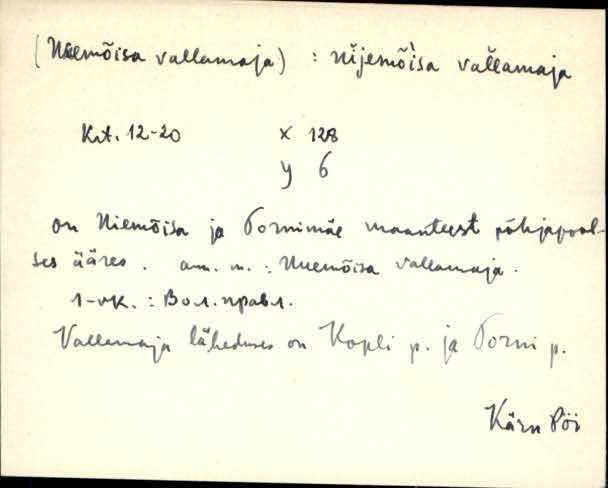 (Neemõisa vallamaja) : nĭjemõ̀isa vallamaja
Kat. 12-20 x 128
y 6
on Niemõisa ja Tornimäe maanteest põhjapool-
ses ääres. am. n. : Nuemõisa vallamaja.
1-vk. : Вол. правл.
Vallamaja läheduses on Kopli p. ja Torni p.
Kärn Pöi